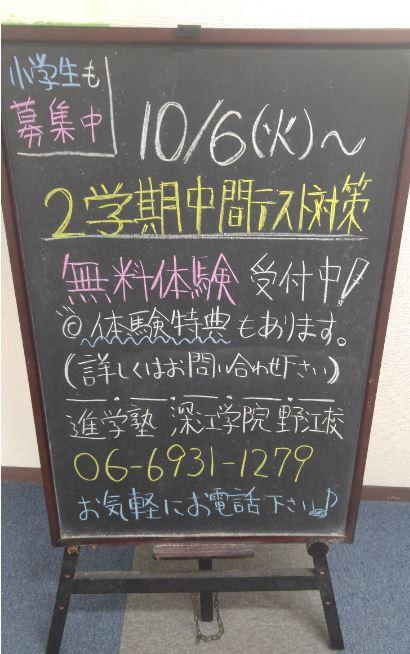 小学生も
募集中
10/6(火)～
2学期中間テスト対策
無料体験 受付中!
◎体験特典もあります。
(詳しくはお問い合わせ下さい)
進学塾 深江学院 野江校
06-6931-1279
お気軽にお電話下さい♪